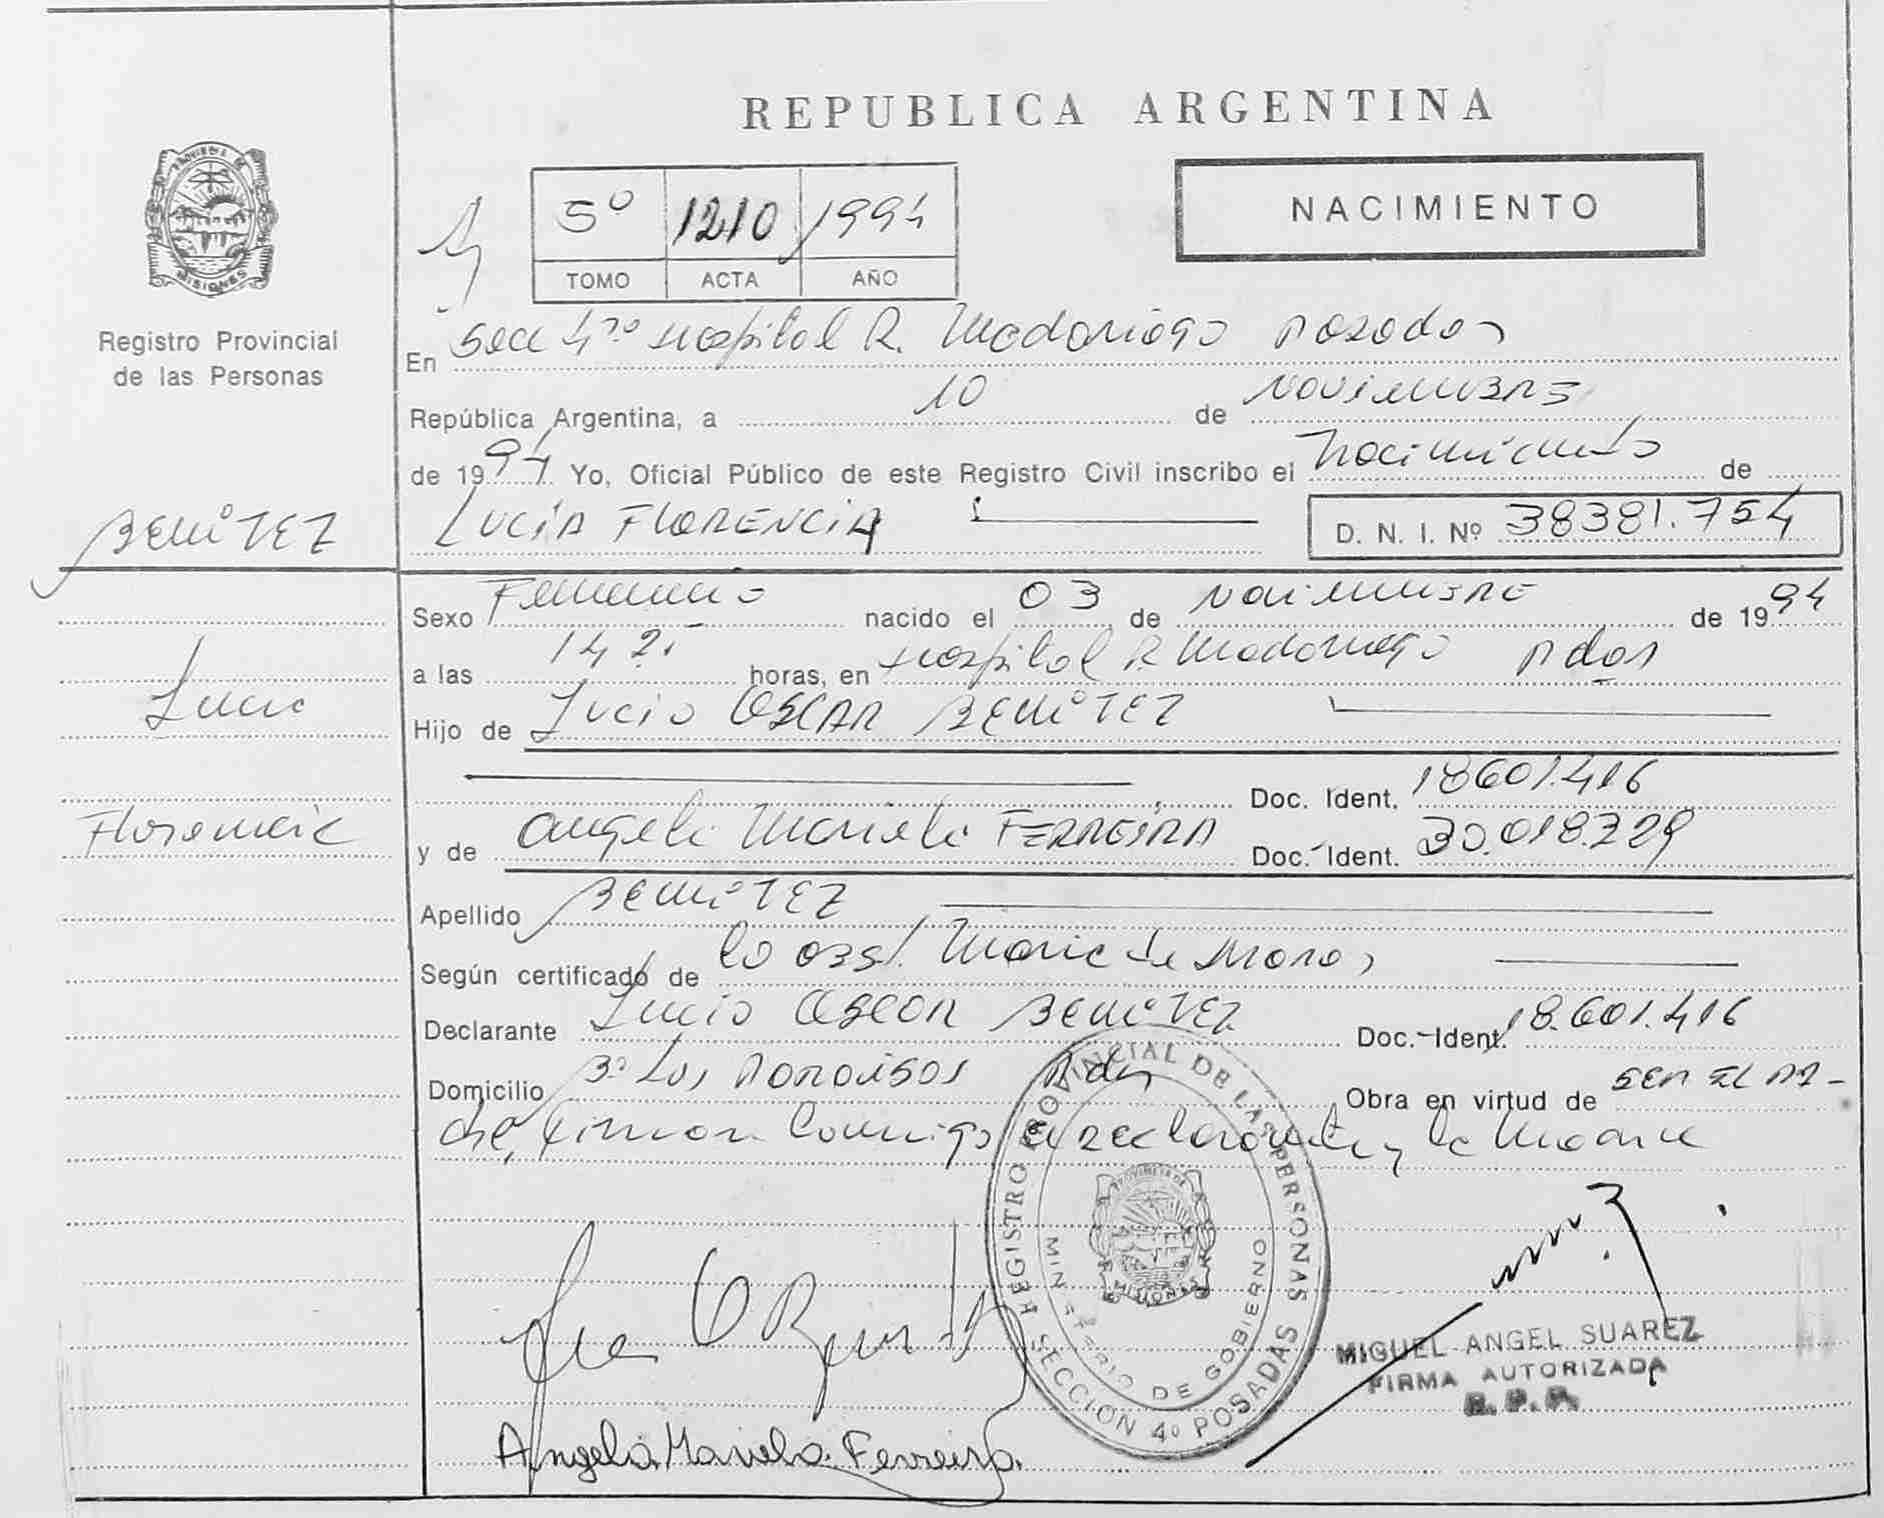 REPUBLICA ARGENTINA
PROVINCIA DE
MISIONES
Registro Provincial
de las Personas
5º 1210 1994
TOMO ACTA AÑO
NACIMIENTO
En Secc 4ta Hospital R. Madariaga Posadas
República Argentina, a 10 de NOVIEMBRE
de 1994 Yo, Oficial Público de este Registro Civil inscribo el Nacimiento de
BENITEZ
LUCIA FLORENCIA
D. N. I. Nº 38381.754
Sexo Femenino nacido el 03 de NOVIEMBRE de 1994
a las 14 horas, en Hospital R Madariaga Pdas
Lucia
Hijo de Lucio OSCAR BENITEZ
Doc. Ident. 18601.416
Florencia
y de Angela Mariela FERREIRA Doc. Ident. 30.018.729
Apellido BENITEZ
Según certificado de la obst. Maria de Moras
Declarante Lucio OSCAR BENITEZ Doc. Ident. 18.601.416
Domicilio Bº Los Paraisos Pdas Obra en virtud de SER EL PA-
dre, firman conmigo el declarante y la Madre
REGISTRO PROVINCIAL DE LAS PERSONAS
MINISTERIO DE GOBIERNO
PROVINCIA DE
MISIONES
SECCION 4º POSADAS
MIGUEL ANGEL SUAREZ
FIRMA AUTORIZADA
R. P. P.
Angela Mariela Ferreira